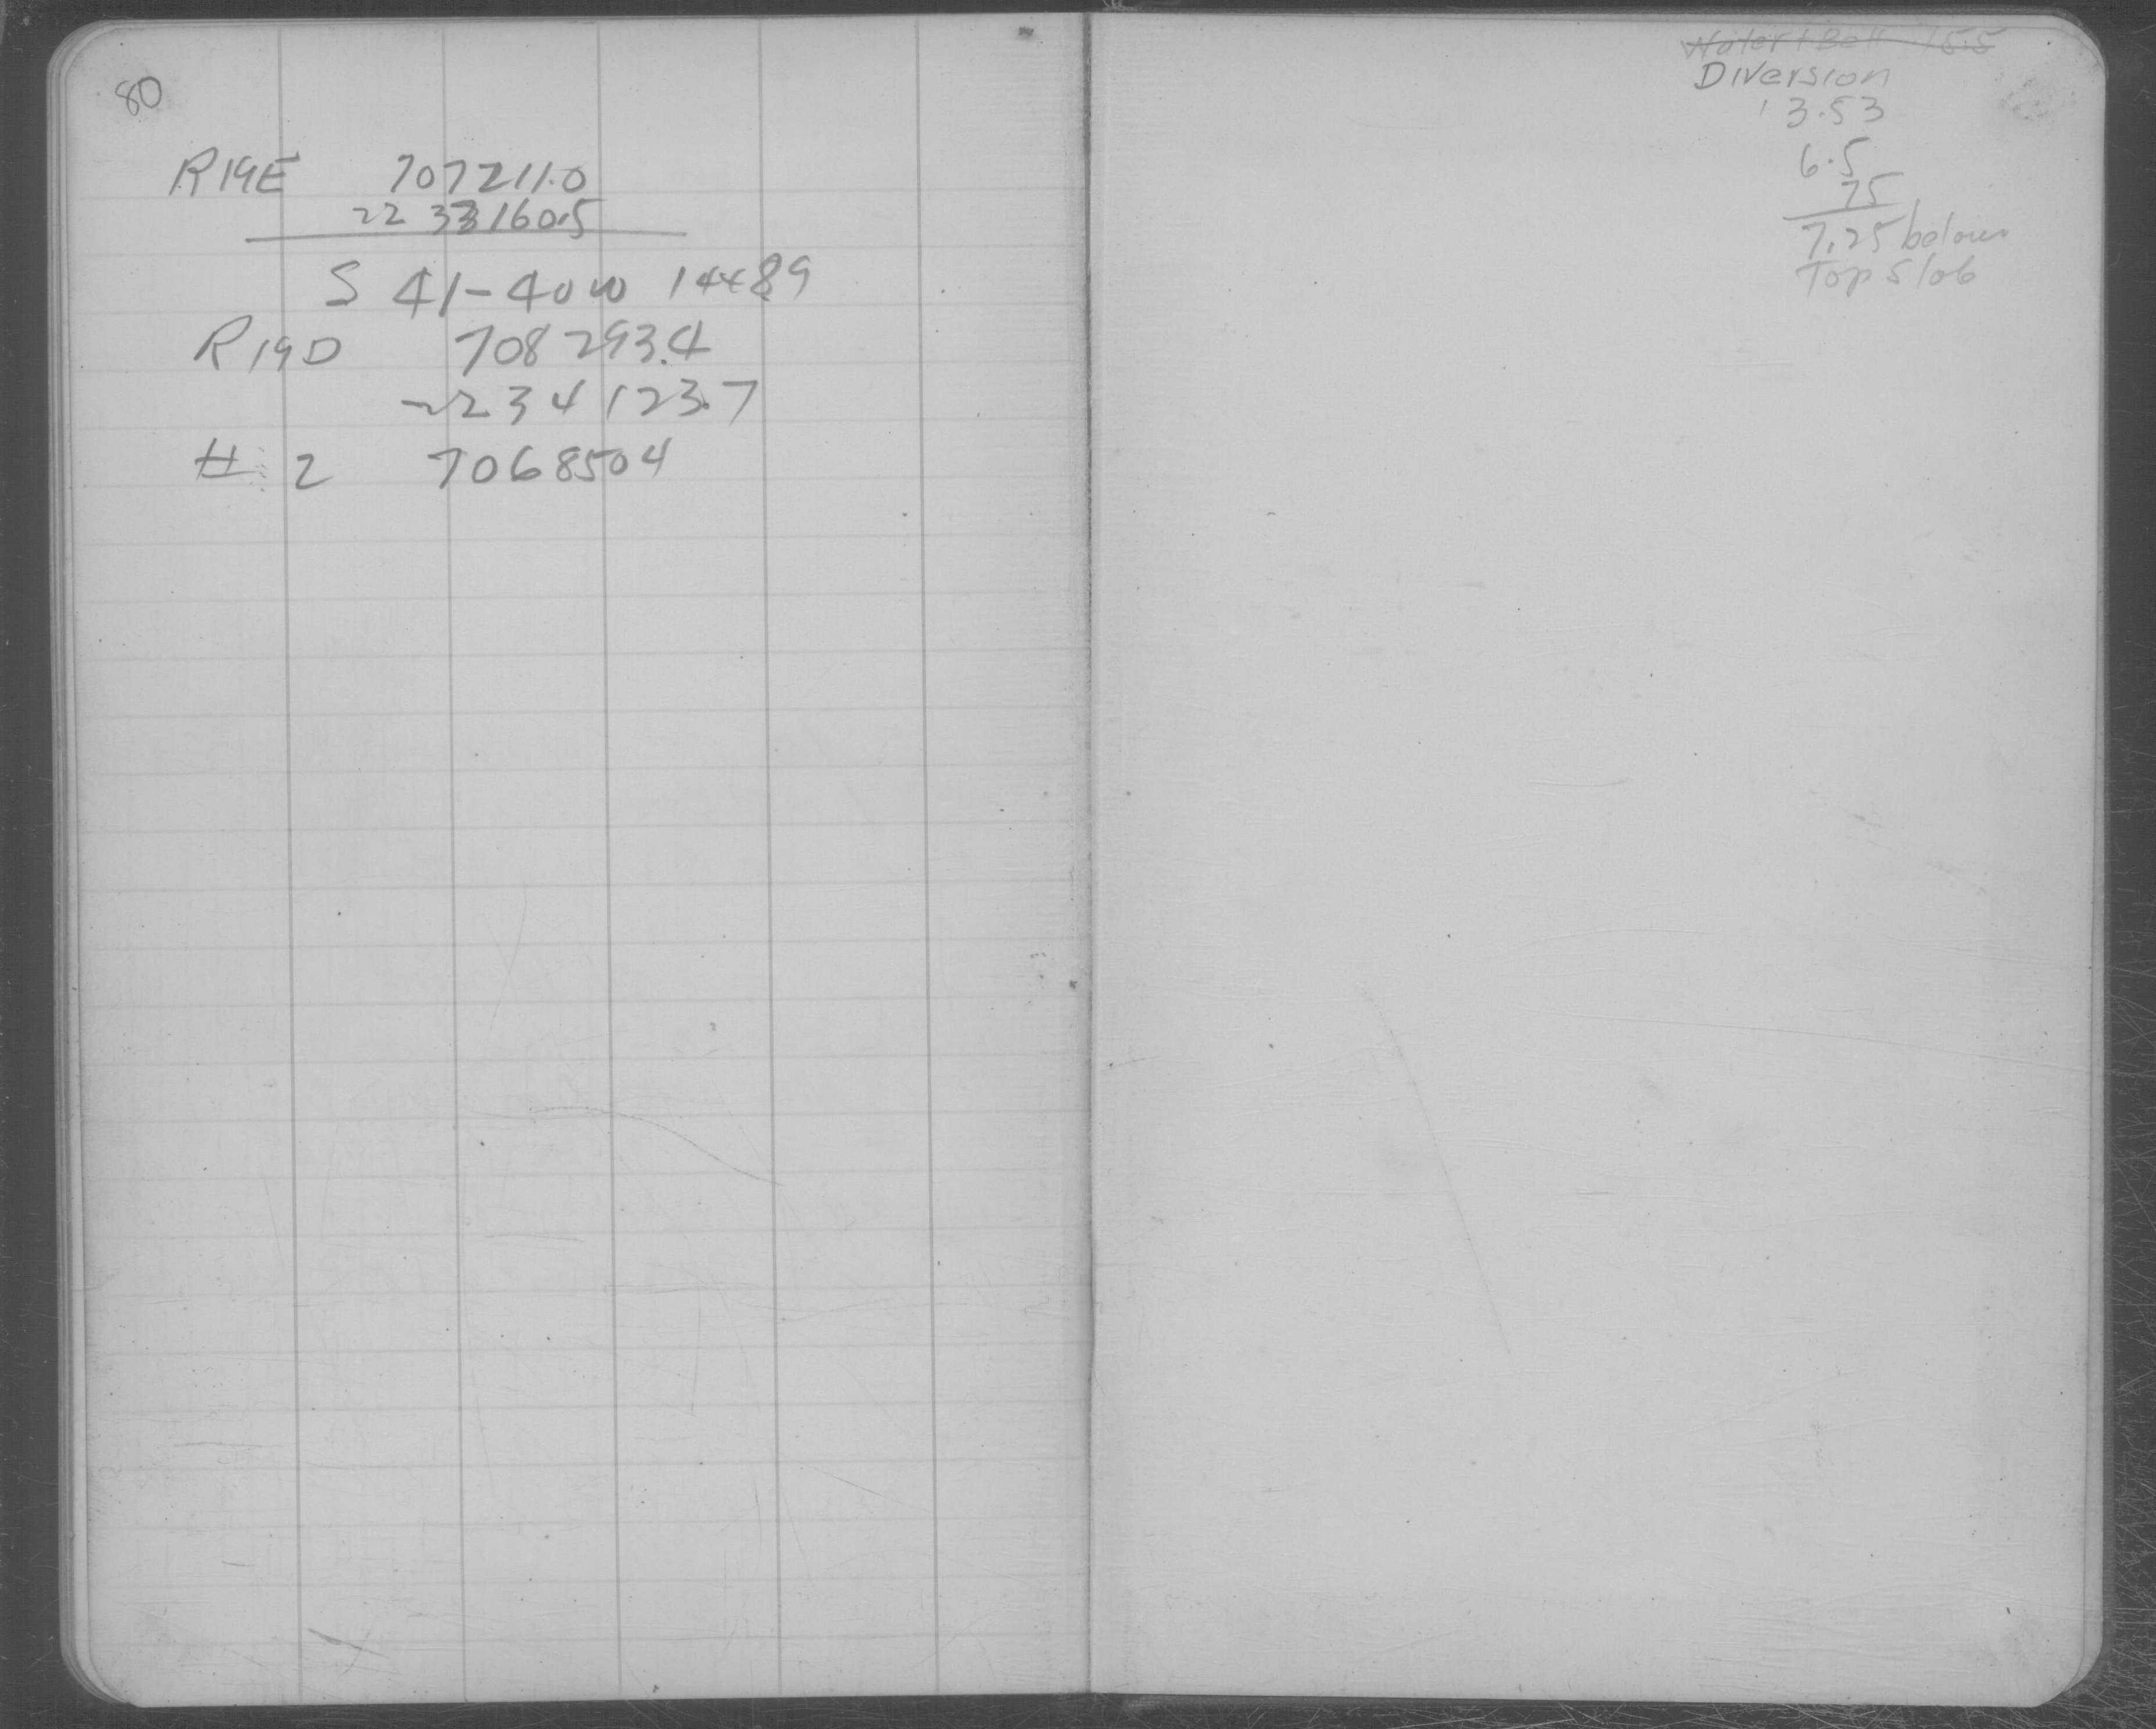 80
R19E 707211.0
22 33160.5
S 41-40 W 14489
R19D 708293.4
2234123.7
# 2 7068504
Water & Bell 15.5
Diversion
13.53
6.5
75
7.25 below
Top Slab